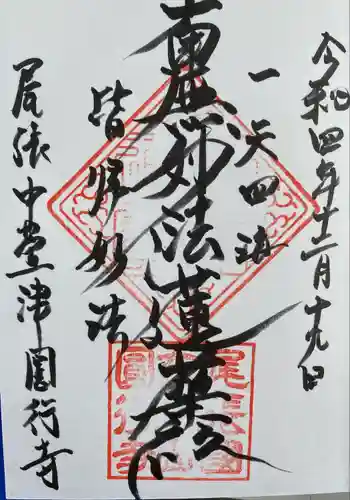 令和四年十二月十九日
一天四海
南無妙法蓮華経
皆帰妙法
尾張中萱津圓行寺